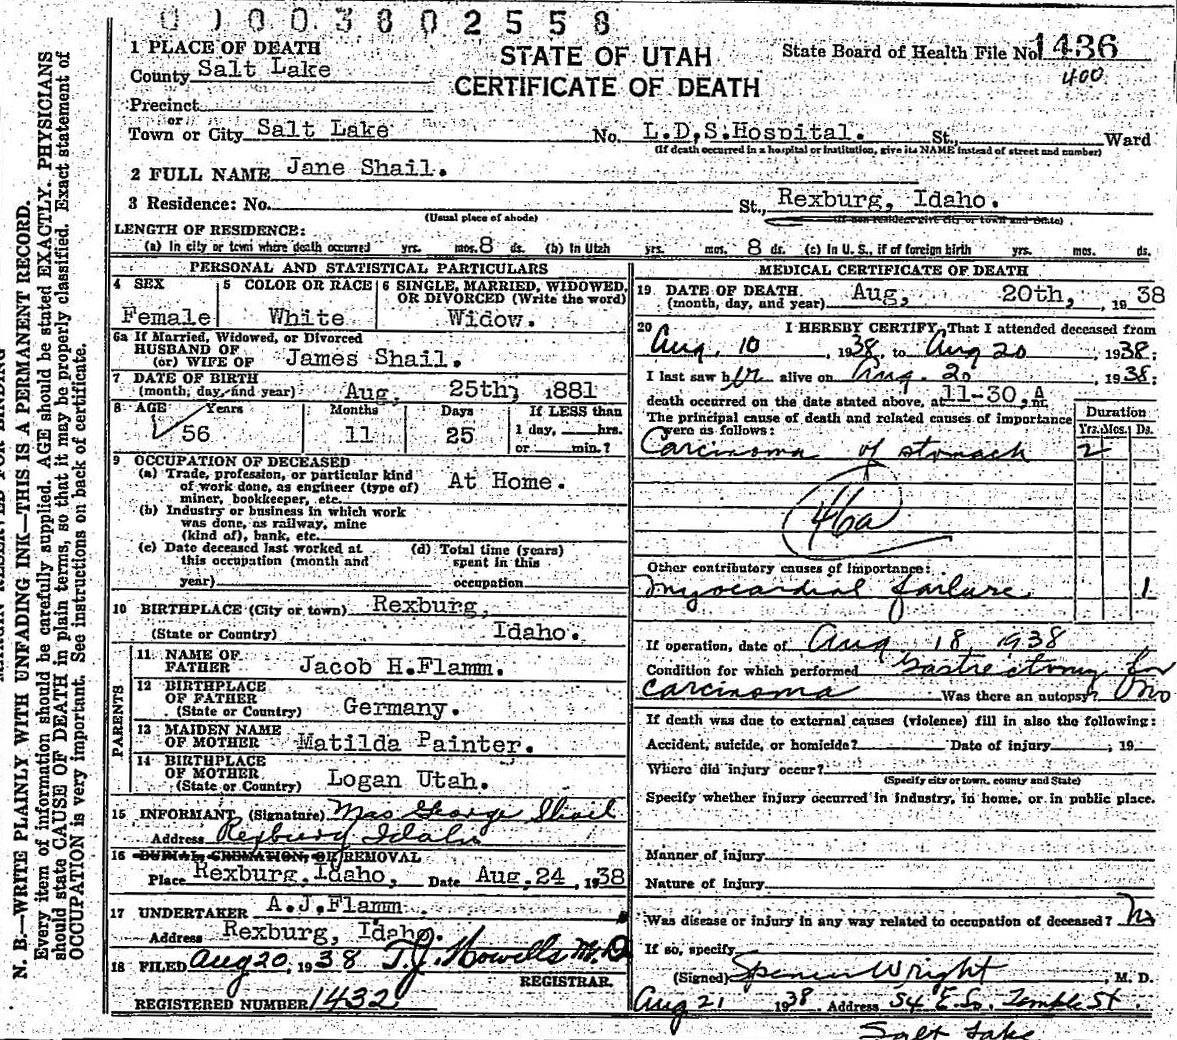 0 1 0 0 3 8 0 2 5 5 8
1 PLACE OF DEATH
County Salt Lake
STATE OF UTAH
CERTIFICATE OF DEATH
State Board of Health File No. 1436
400
Precinct
or
Town or City Salt Lake No. L.D.S.Hospital. St., Ward
(If death occurred in a hospital or institution, give its NAME instead of street and number)
2 FULL NAME Jane Shail.
3 Residence: No. St., Rexburg, Idaho.
(Usual place of abode) (If non resident give city or town and State)
LENGTH OF RESIDENCE:
(a) In city or town where death occurred yrs. mos. 8 ds. (b) In Utah yrs. mos. 8 ds. (c) In U. S., if of foreign birth yrs. mos. ds.
PERSONAL AND STATISTICAL PARTICULARS
4 SEX
Female
5 COLOR OR RACE
White
6 SINGLE, MARRIED, WIDOWED,
OR DIVORCED (Write the word)
Widow.
6a If Married, Widowed, or Divorced
HUSBAND OF
(or) WIFE OF James Shail.
7 DATE OF BIRTH
(month, day, and year) Aug, 25th, 1881
8 AGE Years Months Days If LESS than
56 11 25 1 day, hrs.
or min.?
9 OCCUPATION OF DECEASED
(a) Trade, profession, or particular kind
of work done, as engineer (type of)
miner, bookkeeper, etc. At Home.
(b) Industry or business in which work
was done, as railway, mine
(kind of), bank, etc.
(c) Date deceased last worked at
this occupation (month and
year)
(d) Total time (years)
spent in this
occupation
10 BIRTHPLACE (City or town) Rexburg,
(State or Country) Idaho.
PARENTS
11 NAME OF
FATHER Jacob H.Flamm.
12 BIRTHPLACE
OF FATHER
(State or Country) Germany.
13 MAIDEN NAME
OF MOTHER Matilda Painter.
14 BIRTHPLACE
OF MOTHER
(State or Country) Logan Utah.
15 INFORMANT (Signature) Mrs George Shail
Address Rexburg Idaho
16 BURIAL, CREMATION, OR REMOVAL
Place Rexburg, Idaho, Date Aug, 24, 1938
17 UNDERTAKER A.J.Flamm
Address Rexburg, Idaho.
18 FILED Aug 20, 1938 T.J. Howells M.D.
REGISTRAR.
REGISTERED NUMBER 1432
MEDICAL CERTIFICATE OF DEATH
19 DATE OF DEATH
(month, day, and year) Aug, 20th, 1938
20 I HEREBY CERTIFY, That I attended deceased from
Aug. 10, 1938, to Aug 20, 1938;
I last saw her alive on Aug. 20, 1938;
death occurred on the date stated above, at 11-30, A m.
The principal cause of death and related causes of importance
were as follows:
Duration
Yrs. Mos. Ds.
Carcinoma of stomach 2
Other contributory causes of importance:
Myocardial failure 1
If operation, date of Aug 18, 1938
Condition for which performed Gastrectomy for
carcinoma Was there an autopsy? No
If death was due to external causes (violence) fill in also the following:
Accident, suicide, or homicide? Date of injury , 19
Where did injury occur?
(Specify city or town, county and State)
Specify whether injury occurred in industry, in home, or in public place.
Manner of injury
Nature of injury
Was disease or injury in any way related to occupation of deceased? No
If so, specify
(Signed) Spencer Wright M. D.
Aug 21 1938 Address 54 E. So. Temple St.
Salt Lake
N. B.—WRITE PLAINLY WITH UNFADING INK—THIS IS A PERMANENT RECORD.
Every item of information should be carefully supplied. AGE should be stated EXACTLY. PHYSICIANS
should state CAUSE OF DEATH in plain terms, so that it may be properly classified. Exact statement of
OCCUPATION is very important. See instructions on back of certificate.